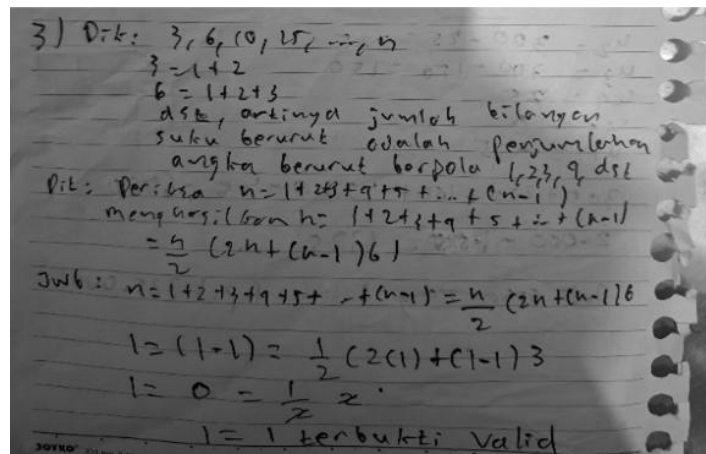 3) Dik: 3, 6, 10, 15, ..., n
3 = 1 + 2
6 = 1 + 2 + 3
dst, artinya jumlah bilangan
suku berurut adalah penjumlahan
angka berurut berpola 1,2,3,4 dst
Dit: Periksa n = 1+2+3+4+5+...+(n-1)
menghasilkan n = 1+2+3+4+5+...+(n-1)
= n/2 (2n+(n-1)6)
Jwb: n = 1+2+3+4+5+...+(n-1) = n/2 (2n+(n-1)6
1 = (1-1) = 1/2 (2(1)+(1-1)3
1 = 0 = 1/2 2
1 = 1 terbukti valid
JOYKO